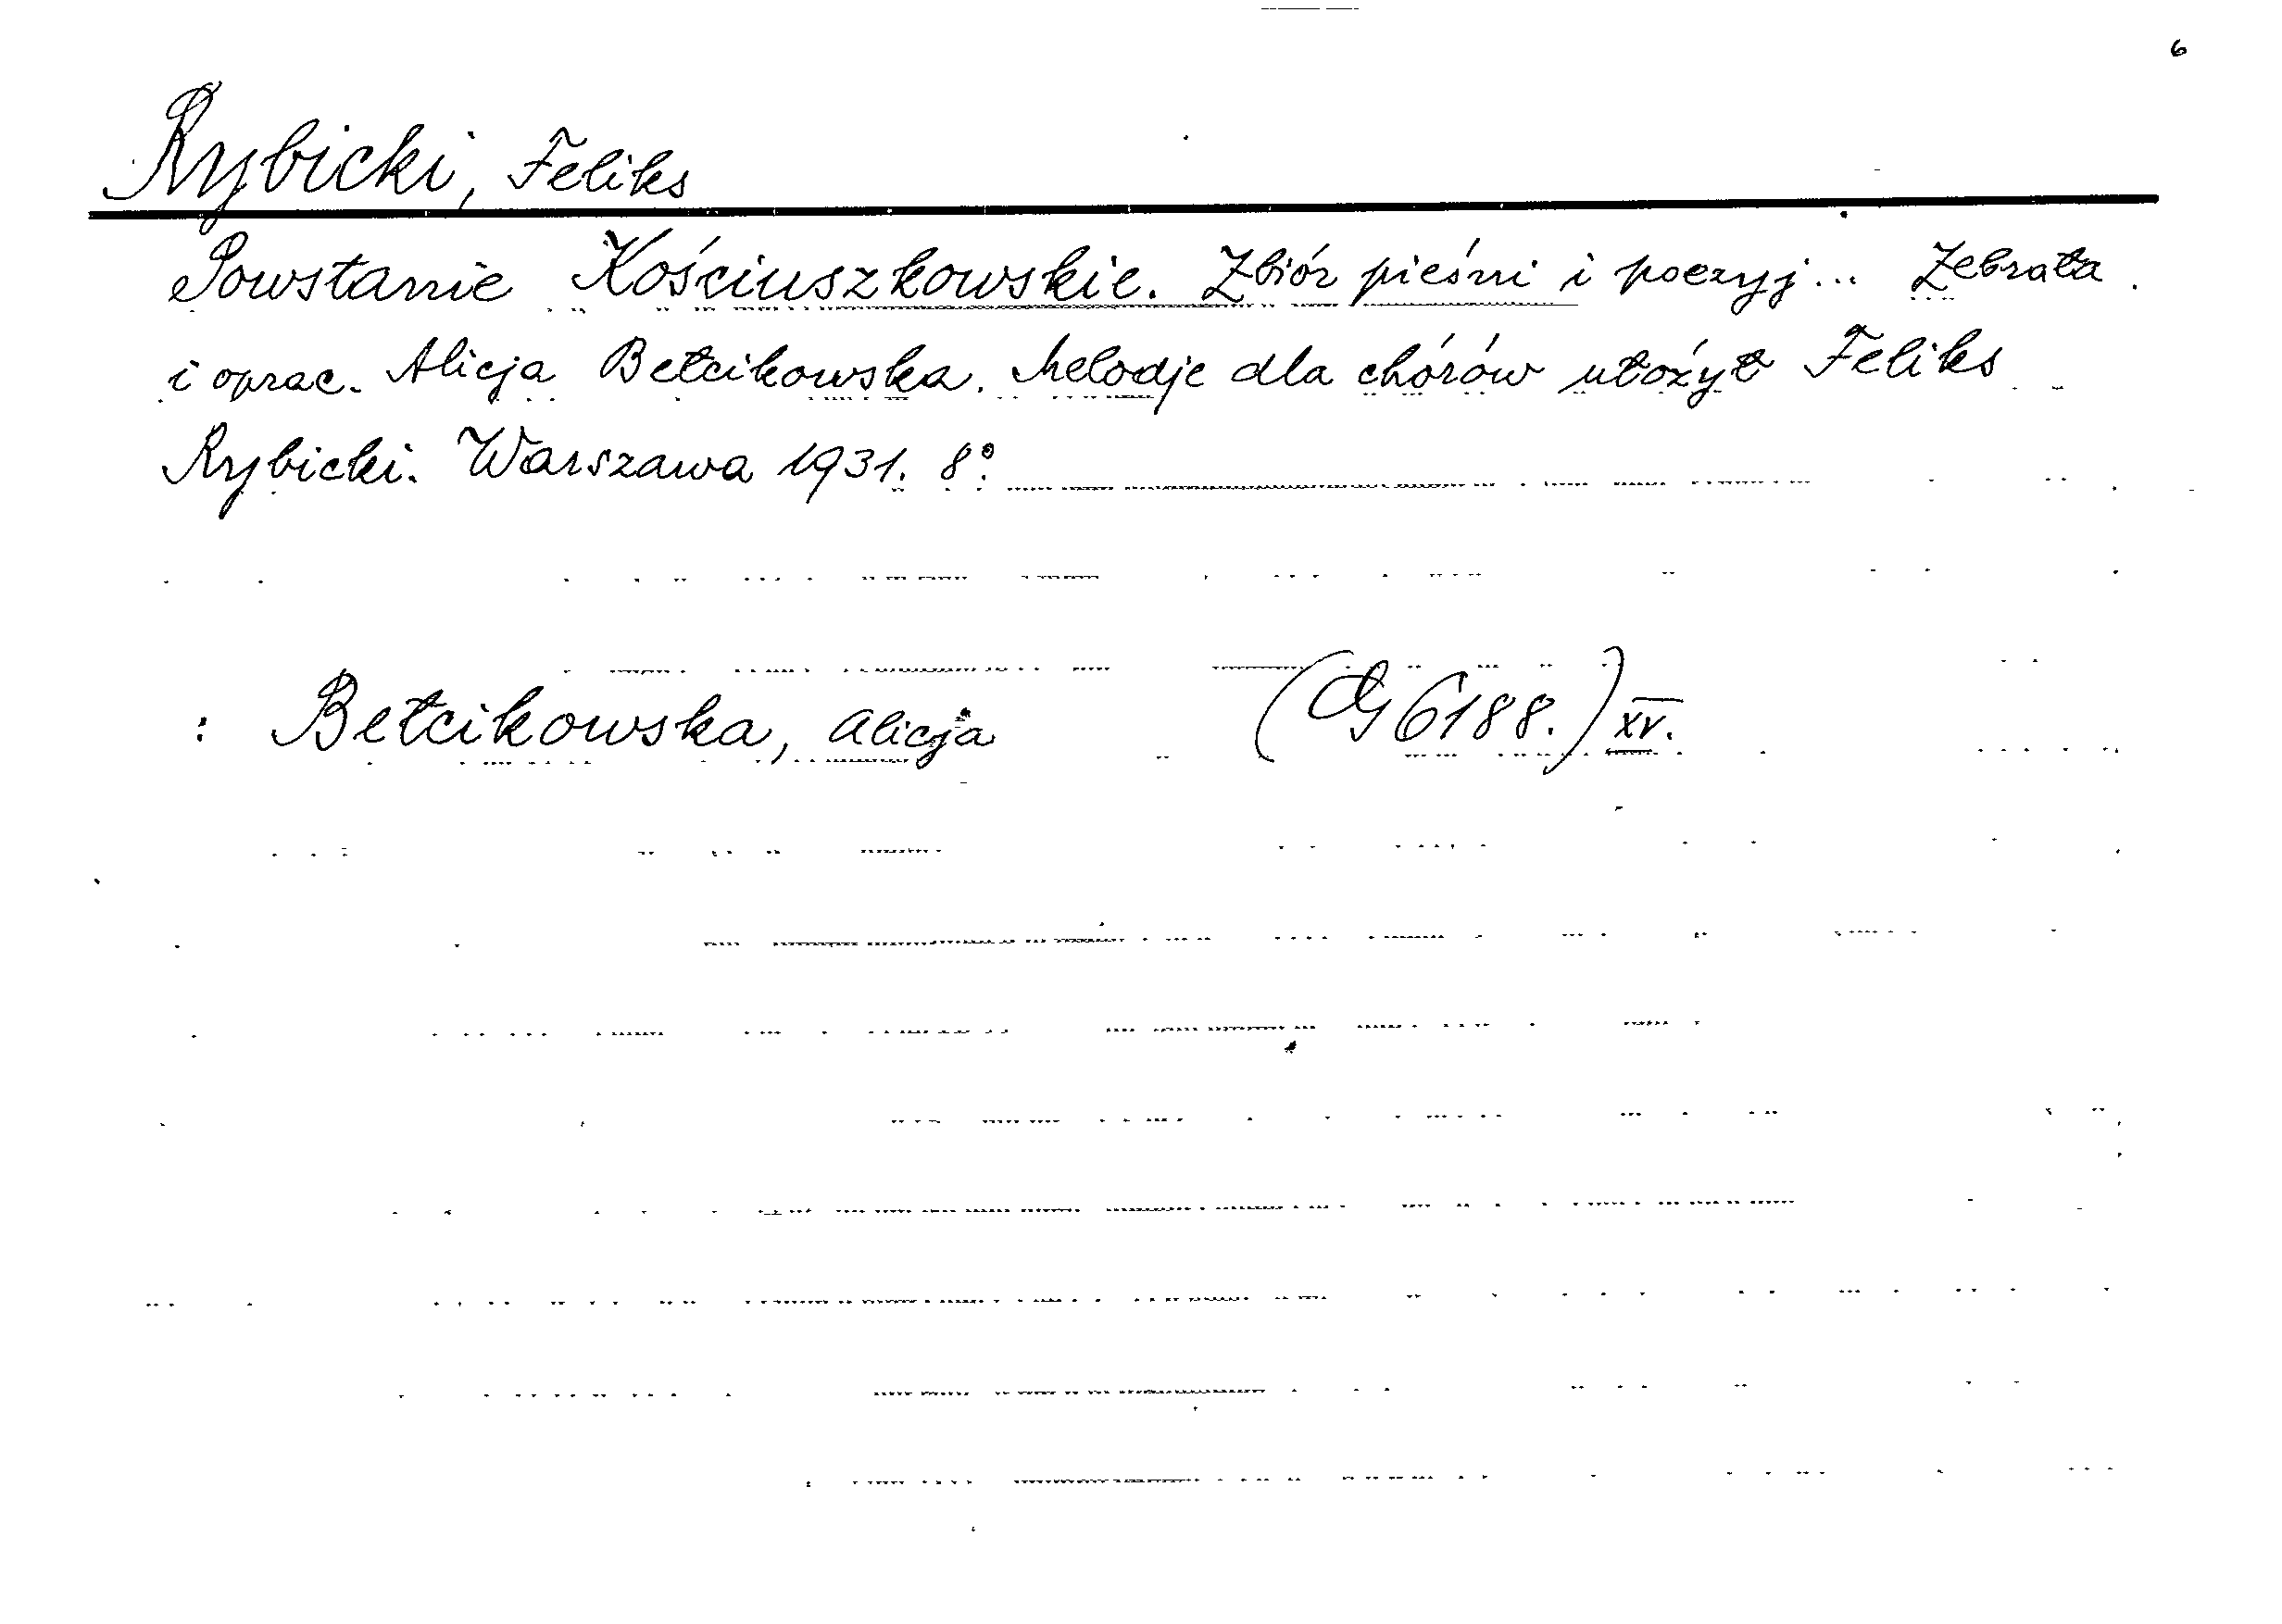 6
Rybicki, Feliks
Powstanie Kościuszkowskie. Zbiór pieśni i poezyj... Zebrała
i oprac. Alicja Bełcikowska. Melodje dla chórów ułożył Feliks
Rybicki. Warszawa 1931. 8°.
: Bełcikowska, Alicja (CG 6188.) XV.